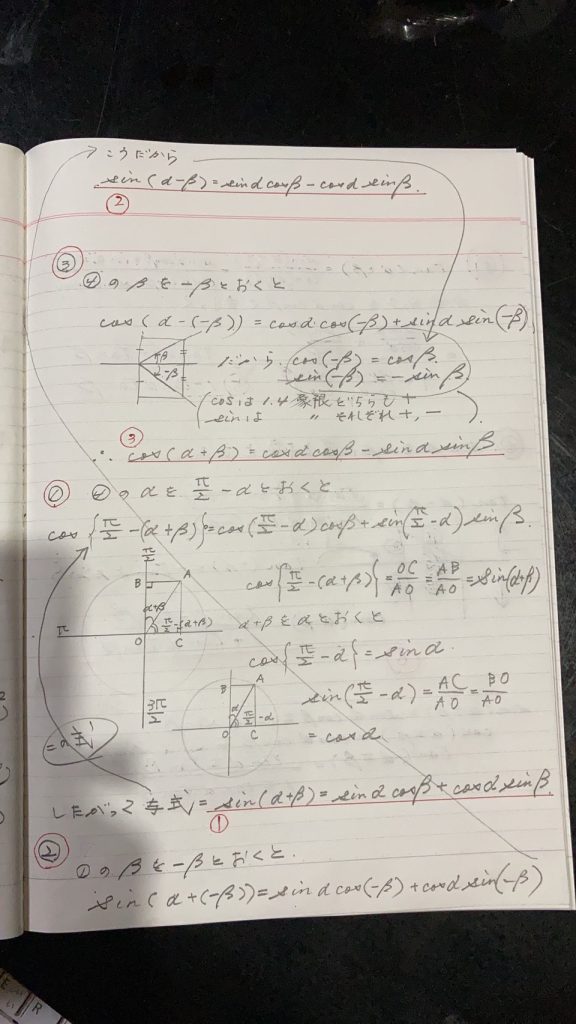 → こうだから
sin(α-β)=sinαcosβ-cosα sinβ.
②
③
④のβを-βとおくと
cos(α-(-β))=cosαcos(-β)+sinα sin(-β)
β
-β
だから cos(-β)=cosβ.
sin(-β)=-sinβ
(cosは1.4象限どちらも+
sinは 〃 それぞれ+,-)
③
∴ cos(α+β)=cosαcosβ-sinα sinβ
① ④のαをπ/2-αとおくと
cos{π/2-(α+β)}=cos(π/2-α)cosβ+sin(π/2-α)sinβ.
π/2
B
A
α+β
π/2-(α+β)
π
O
C
3π/2
cos{π/2-(α+β)}=OC/AO=AB/AO=sin(α+β)
α+βをαとおくと
cos{π/2-α}=sinα.
B
A
α
π/2-α
O
C
sin(π/2-α)=AC/AO=BO/AO
=cosα.
この式
したがって 与式=sin(α+β)=sinαcosβ+cosα sinβ.
①
② ①のβを-βとおくと.
sin(α+(-β))=sinαcos(-β)+cosα sin(-β)